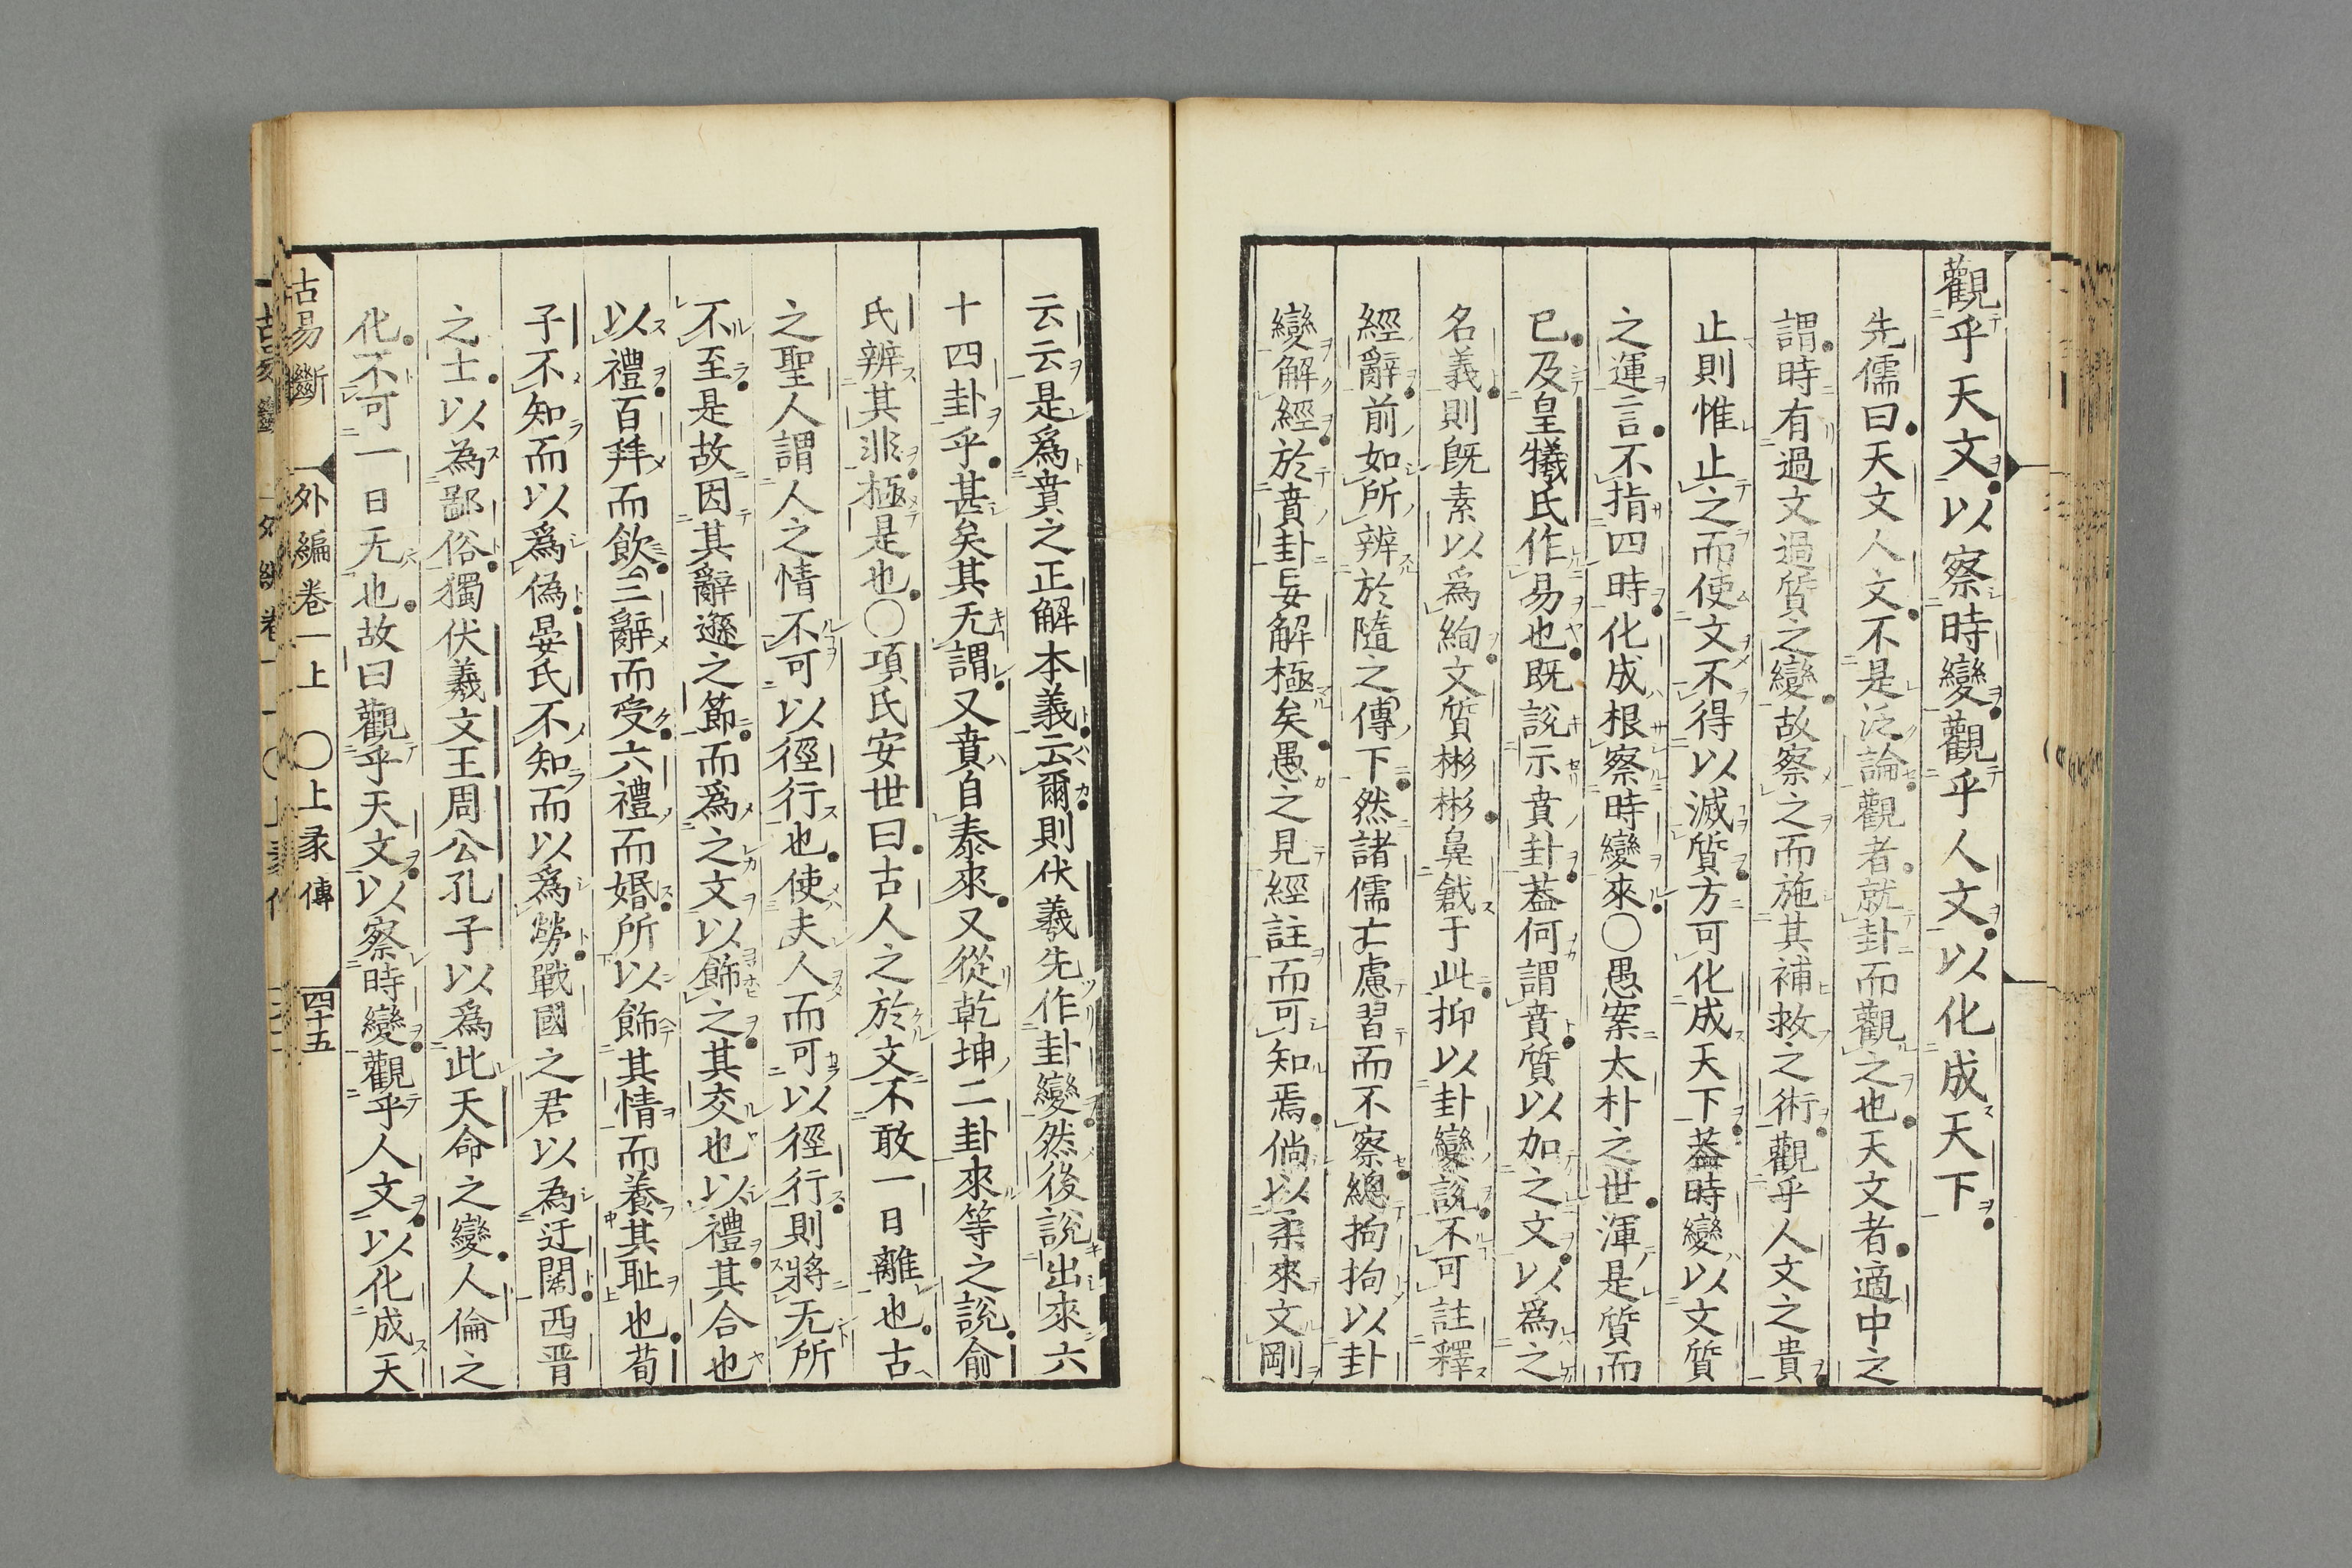 觀乎天文以察時變觀乎人文以化成天下
先儒曰天文人文不是泛論觀者就卦而觀之也天文者適中之
謂時有過文過質之變故察之而施其補救之術觀乎人文之貴
止則惟止之而使文不得以滅質方可化成天下葢時變以文質
之運言不指四時化成根察時變來〇愚案太朴之世渾是質而
已及皇犧氏作易也既説示賁卦葢何謂賁質以加之文以爲之
名義則既素以爲絢文質彬彬鼻戧于此抑以卦變説不可註釋
經辭前如所辨於隨之傳下然諸儒亡慮習而不察總拘拘以卦
變解經於賁卦妄解極矣愚之見經註而可知焉倘以柔來文剛
云云是爲賁之正解本義云爾則伏羲先作卦變然後説出來六
十四卦乎甚矣其无謂又賁自泰來又從乾坤二卦來等之説俞
氏辨其非極是也〇項氏安世曰古人之於文不敢一日離也古
之聖人謂人之情不可以徑行也使夫人而可以徑行則將无所
不至是故因其辭遜之節而爲之文以飾之其交也以禮其合也
以禮百拜而飲三辭而受六禮而婚所以飾其情而養其耻也荀
子不知而以爲僞晏氏不知而以爲勞戰國之君以為迂闊西晋
之士以為鄙俗獨伏羲文王周公孔子以爲此天命之變人倫之
化不可一日无也故曰觀乎天文以察時變觀乎人文以化成天
古易斷 外編卷一上 〇上彖傳 四十五